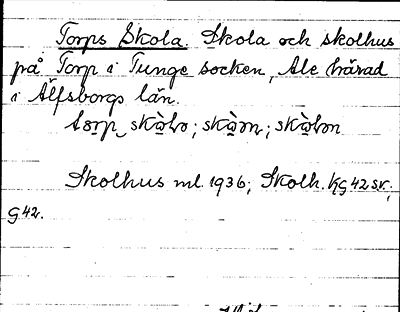 Torps Skola. Skola och skolhus
på Torp i Tunge socken, Ale härad
i Älfsborgs län.
Skolhus ml. 1936; Skolh. KG 42 sv.;
G 42.